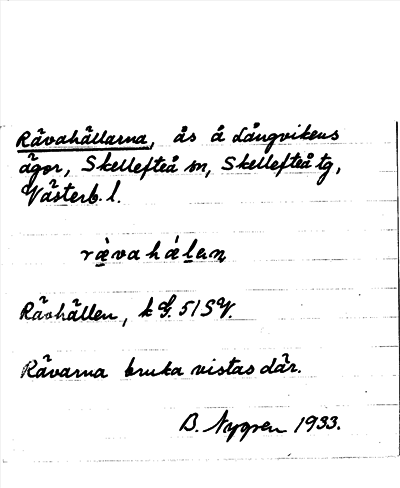 Rävahällarna, ås å Långvikens
ägor, Skellefteå sn, Skellefteå tg,
Västerb. l.
Rävhällen, k G. 51 SV.
Rävarna bruka vistas där.
B. Nygren 1933.